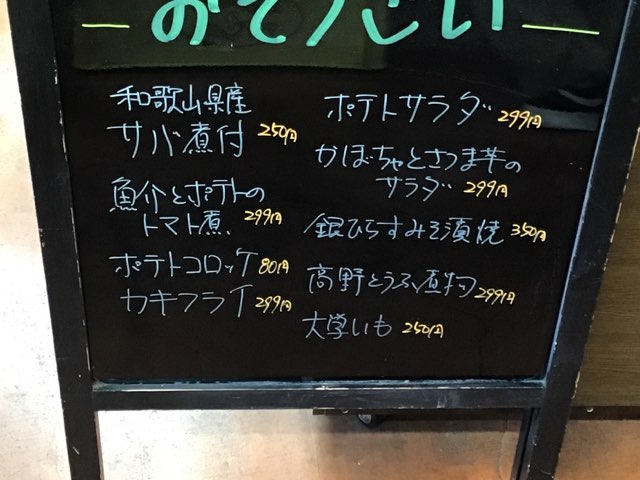 おそうざい
和歌山県産
サバ煮付 250円
魚介とポテトの
トマト煮 299円
ポテトコロッケ 80円
カキフライ 299円
ポテトサラダ 299円
かぼちゃとさつま芋の
サラダ 299円
銀ひらすみそ漬焼 350円
高野とうふ煮物 299円
大学いも 250円